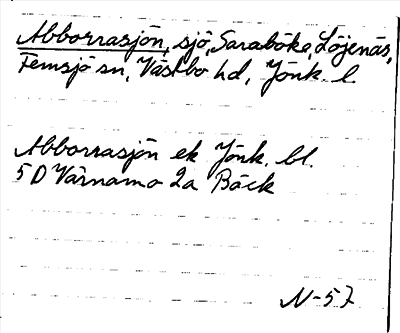 Abborrasjön, sjö, Saraböke, Löjenäs,
Femsjö sn, Västbo hd, Jönk. l.
Abborrasjön ek Jönk. bl.
5 D Värnamo 2a Bäck
N-57